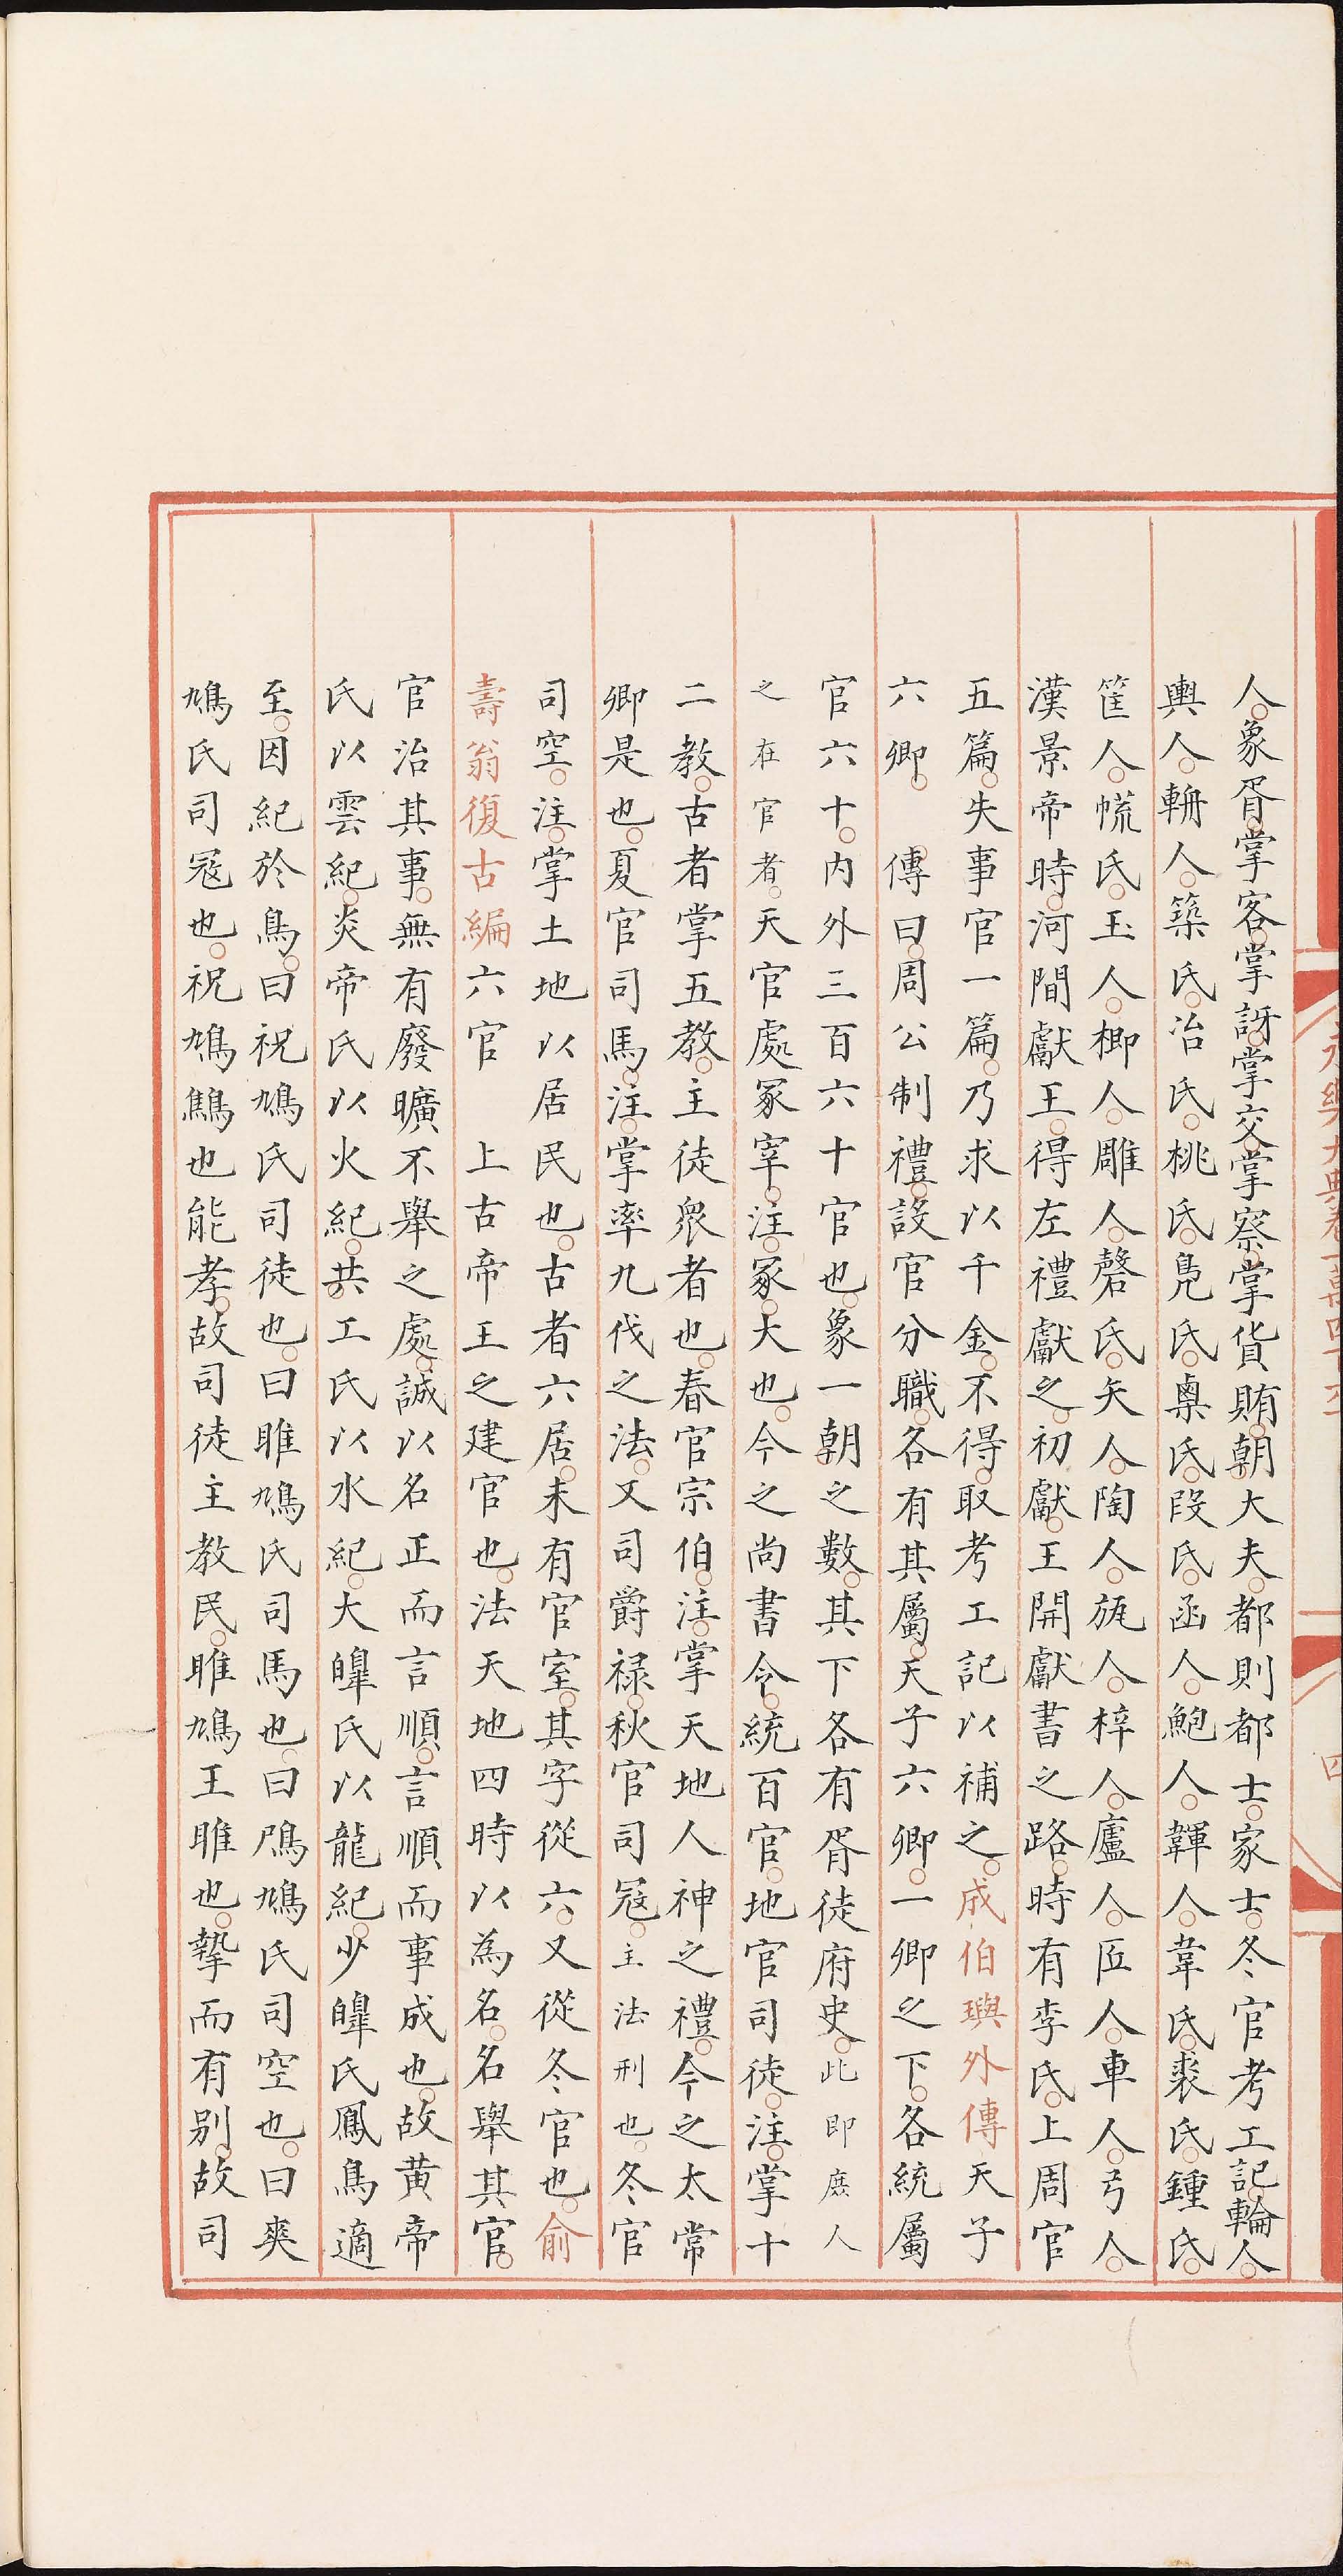 人。象胥。掌客。掌訝。掌交。掌察。掌貨賄。朝大夫。都則都士。家士。冬官考工記。輪人。
輿人。輈人。築氏。冶氏。桃氏。鳧氏。㮚氏。段氏。函人。鮑人。韗人。韋氏。裘氏。鍾氏。
筐人。㡛氏。玉人。楖人。雕人。磬氏。矢人。陶人。旊人。梓人。廬人。匠人。車人。弓人。
漢景帝時。河間獻王。得左禮獻之。初獻。王開獻書之路。時有李氏。上周官
五篇。失事官一篇。乃求以千金。不得。取考工記以補之。成伯璵外傳天子
六卿。傳曰。周公制禮。設官分職。各有其屬。天子六卿。一卿之下。各統屬
官六十。內外三百六十官也。象一朝之數。其下各有胥徒府史。此即庶人
之在官者。天官處冢宰。注。冢。大也。今之尚書令。統百官。地官司徒。注。掌十
二教。古者掌五教。主徒眾者也。春官宗伯。注。掌天地人神之禮。今之太常
卿是也。夏官司馬。注。掌率九伐之法。又司爵祿。秋官司寇。主法刑也。冬官
司空。注。掌土地以居民也。古者六居。未有官室。其字從六。又從冬官也。俞
壽翁復古編六官　上古帝王之建官也。法天地四時以為名。名舉其官。
官治其事。無有廢曠不舉之處。誠以名正而言順。言順而事成也。故黃帝
氏以雲紀。炎帝氏以火紀。共工氏以水紀。大皞氏以龍紀。少皞氏鳳鳥適
至。因紀於鳥。曰祝鳩氏司徒也。曰雎鳩氏司馬也。曰鳲鳩氏司空也。曰爽
鳩氏司寇也。祝鳩鷦也能孝。故司徒主教民。雎鳩王雎也。摯而有別。故司